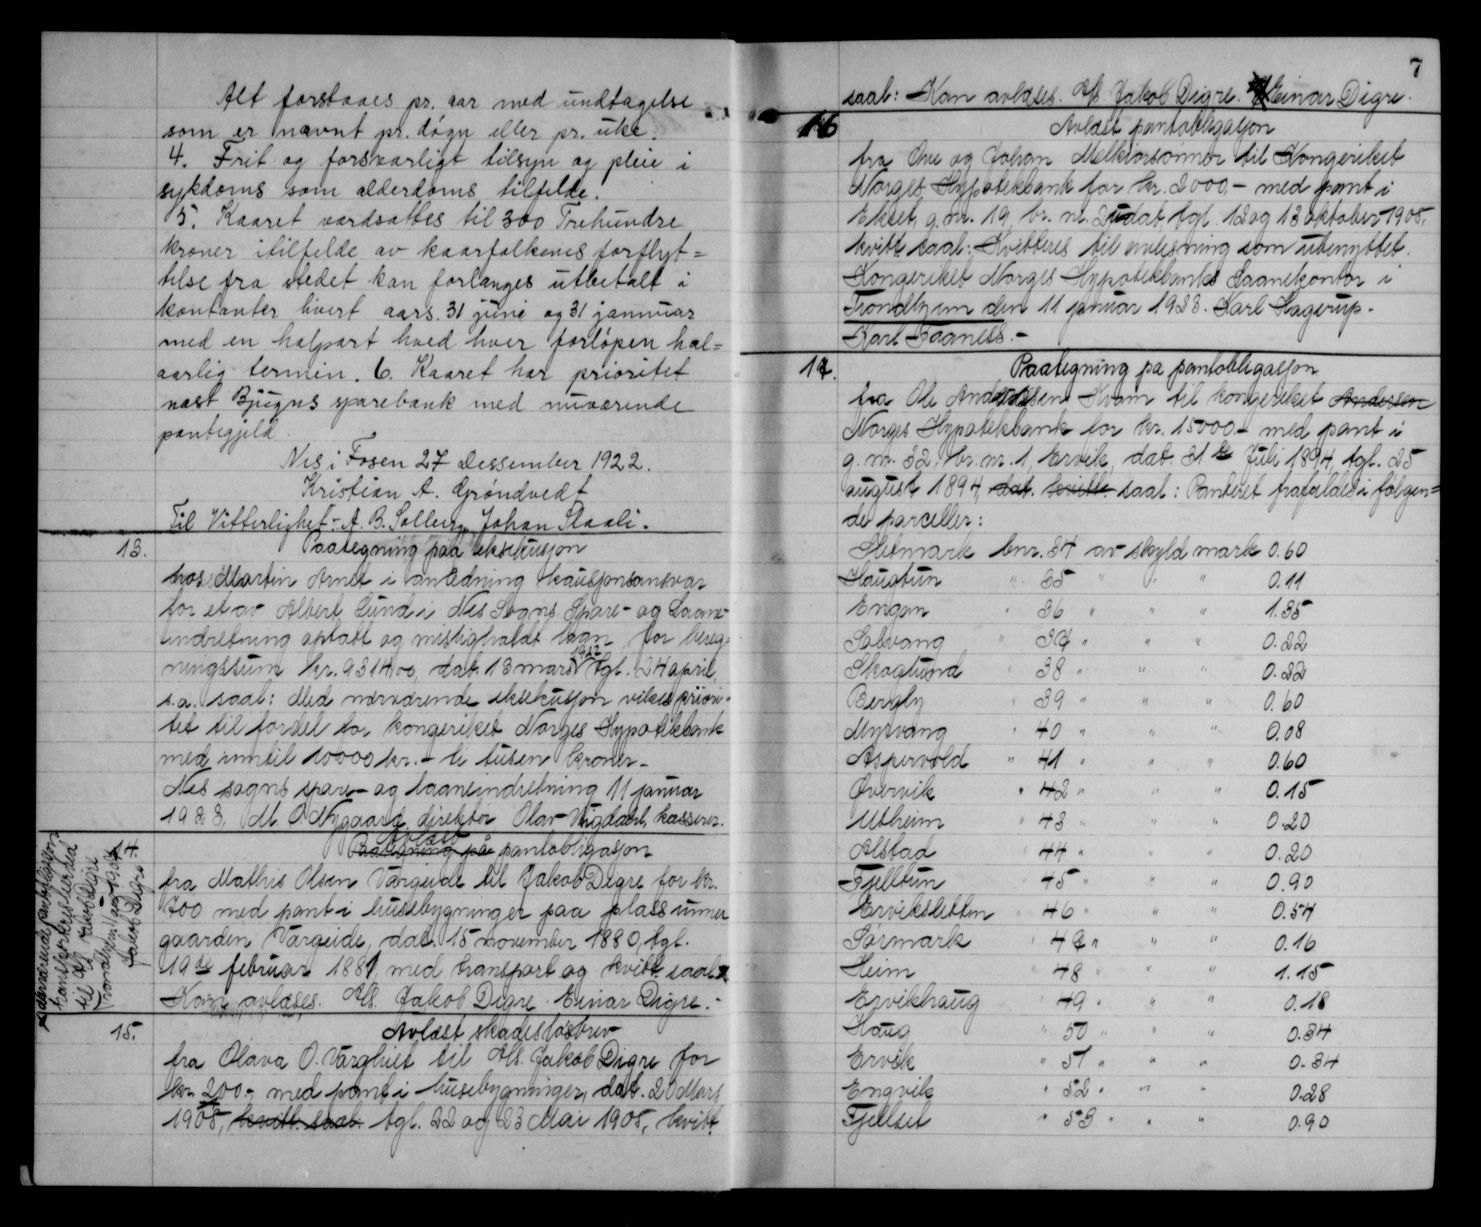 Alt forstaaes pr. aar med undtagelse
som er nævnt pr. døgn eller pr. uke.
4. Frit og forsvarligt tilsyn og pleie i
sykdoms som alderdoms tilfelde.
5. Kaaret værdsættes til 300 Trehundre
kroner i tilfelde av kaarfolkenes forflyt=
telse fra stedet kan forlanges utbetalt i
kontanter hvert aars. 31 juni og 31 jannuar
med en halpart hved hver forløpen hal=
aarlig termin. 6. Kaaret har prioritet
næst Bjugns sparebank med nuværende
pantegjeld.
Nes i Fosen 27 Dessember 1922.
Kristian A. Grøndvedt
Til Vitterlighet:- A. B. Solberg. Johan Staali.
13. Paategning paa eksekusjon
hos Martin Arnet i anledning kausjonsansvar
for et av Albert Lund i Nes Sogns Spare- og Laane-
indretning optatt og misligholdt laan for bereg-
ningssum kr. 9314.00, dat. 13 mars 1922 tgl. 24 april
s.a. saal: Med nærværende eksekusjon vikes priori-
tet til fordel for kongeriket Norges Hypotekbank
med inntil 10000 kr. - ti tusen kroner -
Nes sogns spare- og laaneindretning 11 januar
1923. M. O. Nygaard, direktør Olav Vigdahl, kasserer.
14. Avlæst
Paategning på pantobligasjon
fra Mathis Olsen Vargeide til Jakob Digre for kr.
700 med pant i husebygninger paa plass unner
gaarden Vargeide, dat. 15 november 1880, tgl.
19de februar 1881, med transport og kvitt. saal x
Kan avlæses. Als Jakob Digre. Einar Digre.-
x nærværende pantobligasjon
transporteres herved
til Als Jakob Digre
Trondhjem
Jakob Digre
15. Avlæst skadesløsbrev
fra Olava O. Varghiet til Als. Jakob Digre for
kr. 200.- med pant i husebygninger, dat. 20 Mars
1905, kvitt. saal. tgl. 22 og 23 Mai 1905, kvitt.
7
saal: Kan avlæses. Als Jakob Digre. Einar Digre.
16 Avlæst pantobligasjon
fra Ove og Johan Melkiorsønner til Kongeriket
Norges Hypotekbank for kr. 2000,- med pant i
Ekset, g. nr. 19, br. nr. 2 dat. tgl. 12 og 13 oktober 1905.
kvitt. saal: Kvitteres til avlesning som ubenyttet.
Kongeriket Norges Hypotekbanks Laanekontor i
Trondhjem den 11 januar 1923. Karl Hagerup.
Karl Faaness.-
17. Paategning pa pantobligasjon
fra Ole Andersen Kvam til kongeriket Andersen
Norges Hypotekbank for kr. 15000.- med pant i
g. nr. 32, br. nr. 1, Ervik, dat. 31te Juli 1894, tgl. 25
august 1894, dat. kvitt. saal: Panteret frafaldes i følgen=
de parceller:
Sletmark bnr. 34 av skyld mark 0.60
Haugtun " 35 " " " 0.11
Engan " 36 " " " 1.35
Solvang " 37 " " " 0.22
Skoglund " 38 " " " 0.22
Bergly " 39 " " " 0.60
Myrvang " 40 " " " 0.08
Aspervold " 41 " " " 0.60
Øvervik " 42 " " " 0.15
Utheim " 43 " " " 0.20
Alstad " 44 " " " 0.20
Fjelltun " 45 " " " 0.90
Erviksletten " 46 " " " 0.54
Sørmark " 47 " " " 0.16
Heim " 48 " " " 1.15
Ervikhaug " 49 " " " 0.18
Haug " 50 " " " 0.34
Ervik " 51 " " " 0.34
Engvik " 52 " " " 0.28
Fjellset " 53 " " " 0.90